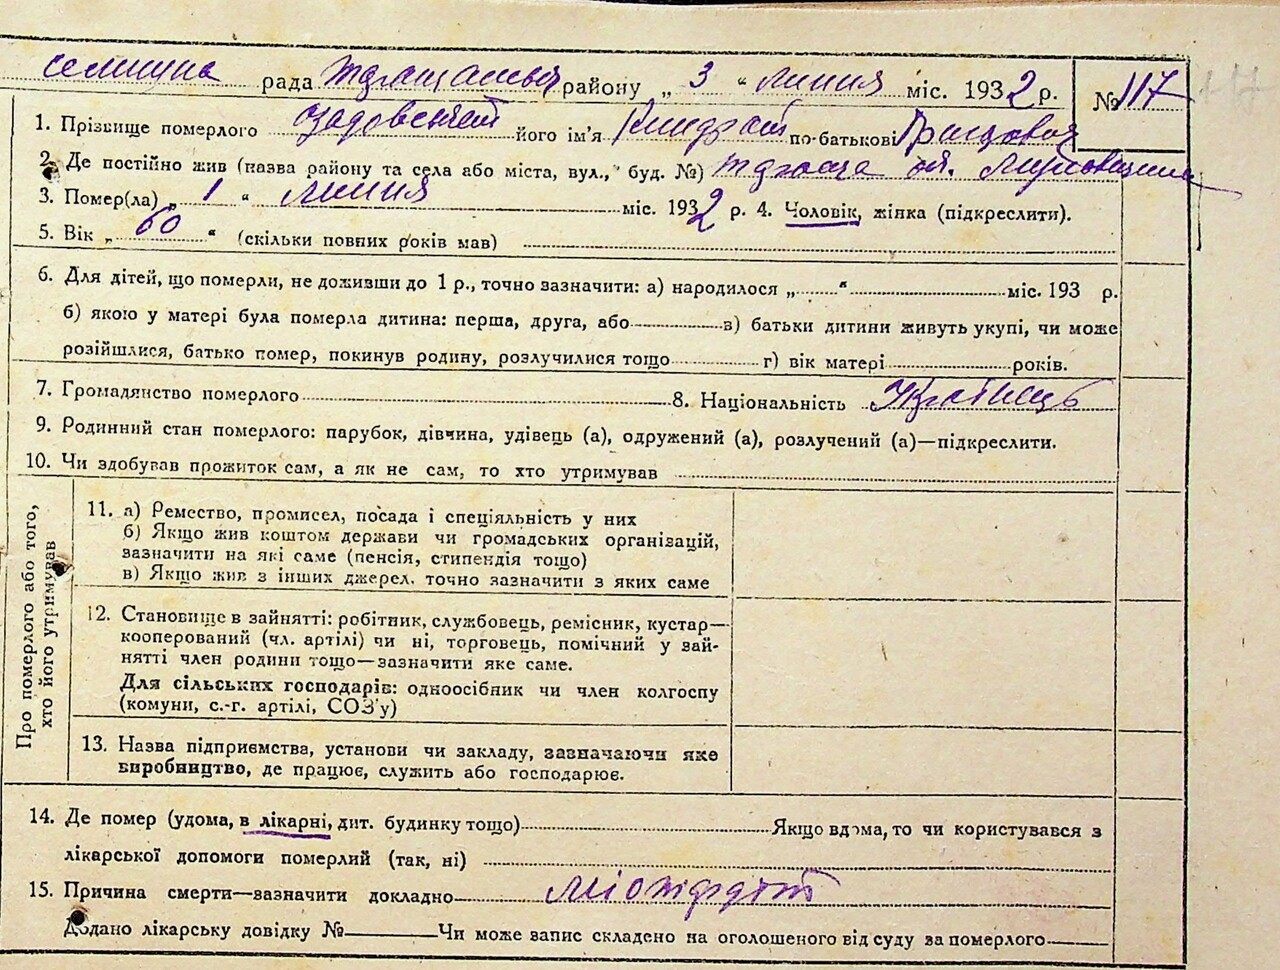 селищна рада району „ 3 “ липня міс. 1932 р. № 117
1. Прізвище померлого його ім'я Киндрат по-батькові Грицович
2. Де постійно жив (назва району та села або міста, вул., буд. №)
3. Помер(ла) „ 1 “ липня міс. 1932 р. 4. Чоловік, жінка (підкреслити).
5. Вік „ 60 “ (скільки повних років мав)
6. Для дітей, що померли, не доживши до 1 р., точно зазначити: а) народилося „ “ міс. 193 р.
б) якою у матері була померла дитина: перша, друга, або в) батьки дитини живуть укупі, чи може
розійшлися, батько помер, покинув родину, розлучилися тощо г) вік матері років.
7. Громадянство померлого 8. Національність Українець
9. Родинний стан померлого: парубок, дівчина, удівець (а), одружений (а), розлучений (а)—підкреслити.
10. Чи здобував прожиток сам, а як не сам, то хто утримував
Про померлого або того,
хто його утримував
11. а) Ремество, промисел, посада і спеціяльність у них
б) Якщо жив коштом держави чи громадських організацій,
зазначити на які саме (пенсія, стипендія тощо)
в) Якщо жив з інших джерел, точно зазначити з яких саме
12. Становище в зайнятті: робітник, службовець, ремісник, кустар—
кооперований (чл. артілі) чи ні, торговець, помічний у зай-
нятті член родини тощо—зазначити яке саме.
Для сільських господарів: одноосібник чи член колгоспу
(комуни, с.-г. артілі, СОЗ'у)
13. Назва підприємства, установи чи закладу, зазначаючи яке
виробництво, де працює, служить або господарює.
14. Де помер (удома, в лікарні, дит. будинку тощо) Якщо вдома, то чи користувався з
лікарської допомоги померлий (так, ні)
15. Причина смерти—зазначити докладно міокардит
Додано лікарську довідку № Чи може запис складено на оголошеного від суду за померлого